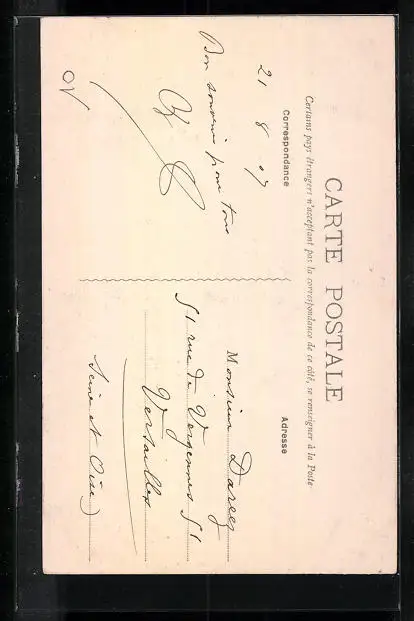 CARTE POSTALE
Certains pays étrangers n'acceptant pas la correspondance de ce côté, se renseigner à la Poste
Correspondance
21 8 07
Bon souvenir pour tous
Adresse
Monsieur
51 rue de Vergennes 51
Versailles
Seine et Oise)